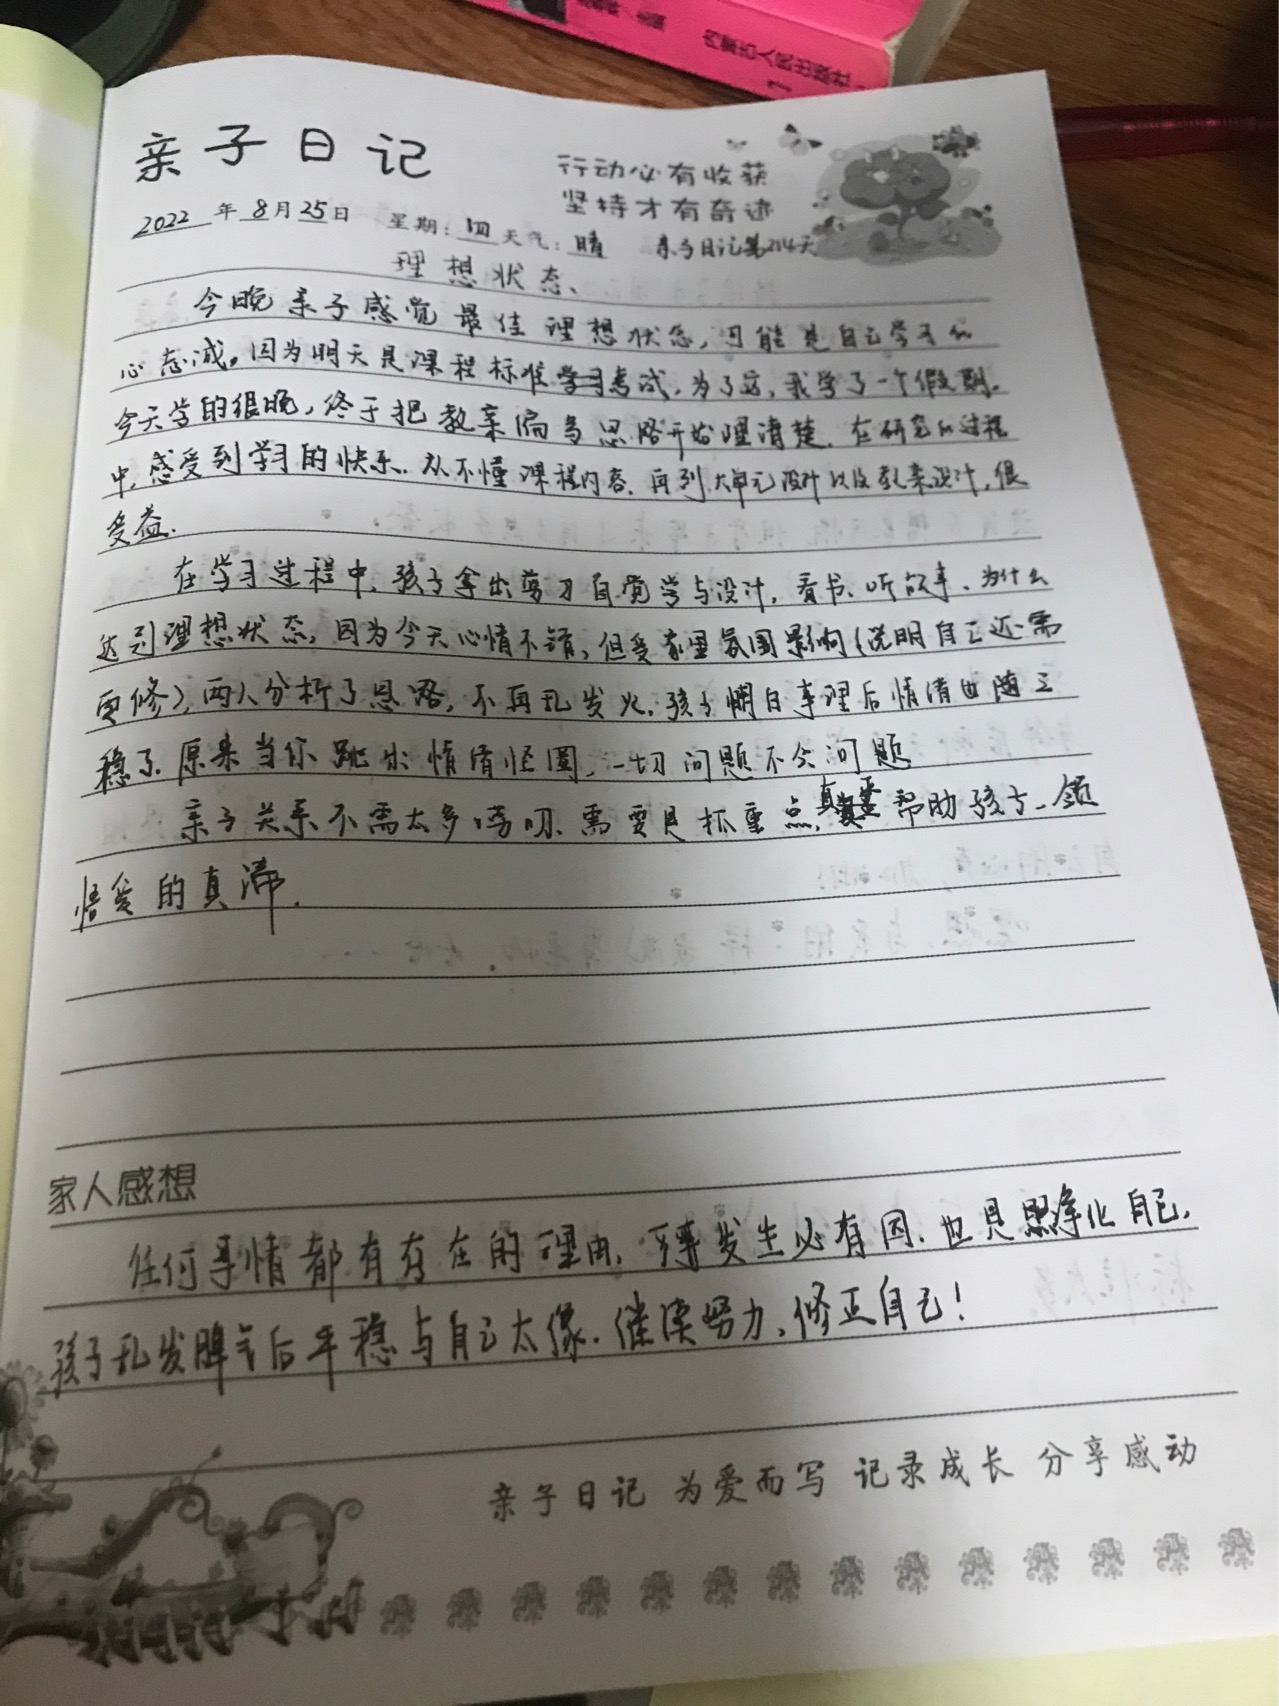 内蒙古人民出版社
亲子日记
行动必有收获
坚持才有奇迹
2022年8月25日 星期:四 天气:晴 亲子日记第214天
理想状态、
今晚亲子感觉最佳理想状态,可能是自己学习的
心态诚。因为明天是课程标准考试,为了这,我学了一个假期。
今天学的很晚,终于把教案偏多思路开始理清楚.在研究的过程
中,感受到学习的快乐.从不懂课程内容.再到大单元设计以及教案设计,很
受益.
在学习过程中,孩子拿出剪刀自觉学与设计,看书、听故事、为什么
达到理想状态,因为今天心情不错,但受家里氛围影响(说明自己还需
要修),两人分析了思路,不再乱发火.孩子明白事理后情绪也随之
稳了.原来当你跳出情绪怪圈,一切问题不会问题
亲子关系不需太多唠叨、需要是抓重点,真正帮助孩子、领
悟爱的真谛.
家人感想
任何事情都有存在的理由,事发生必有因.也是净化自己,
孩子乱发脾气后平稳与自己太像.继续努力,修正自己!
亲子日记 为爱而写 记录成长 分享感动